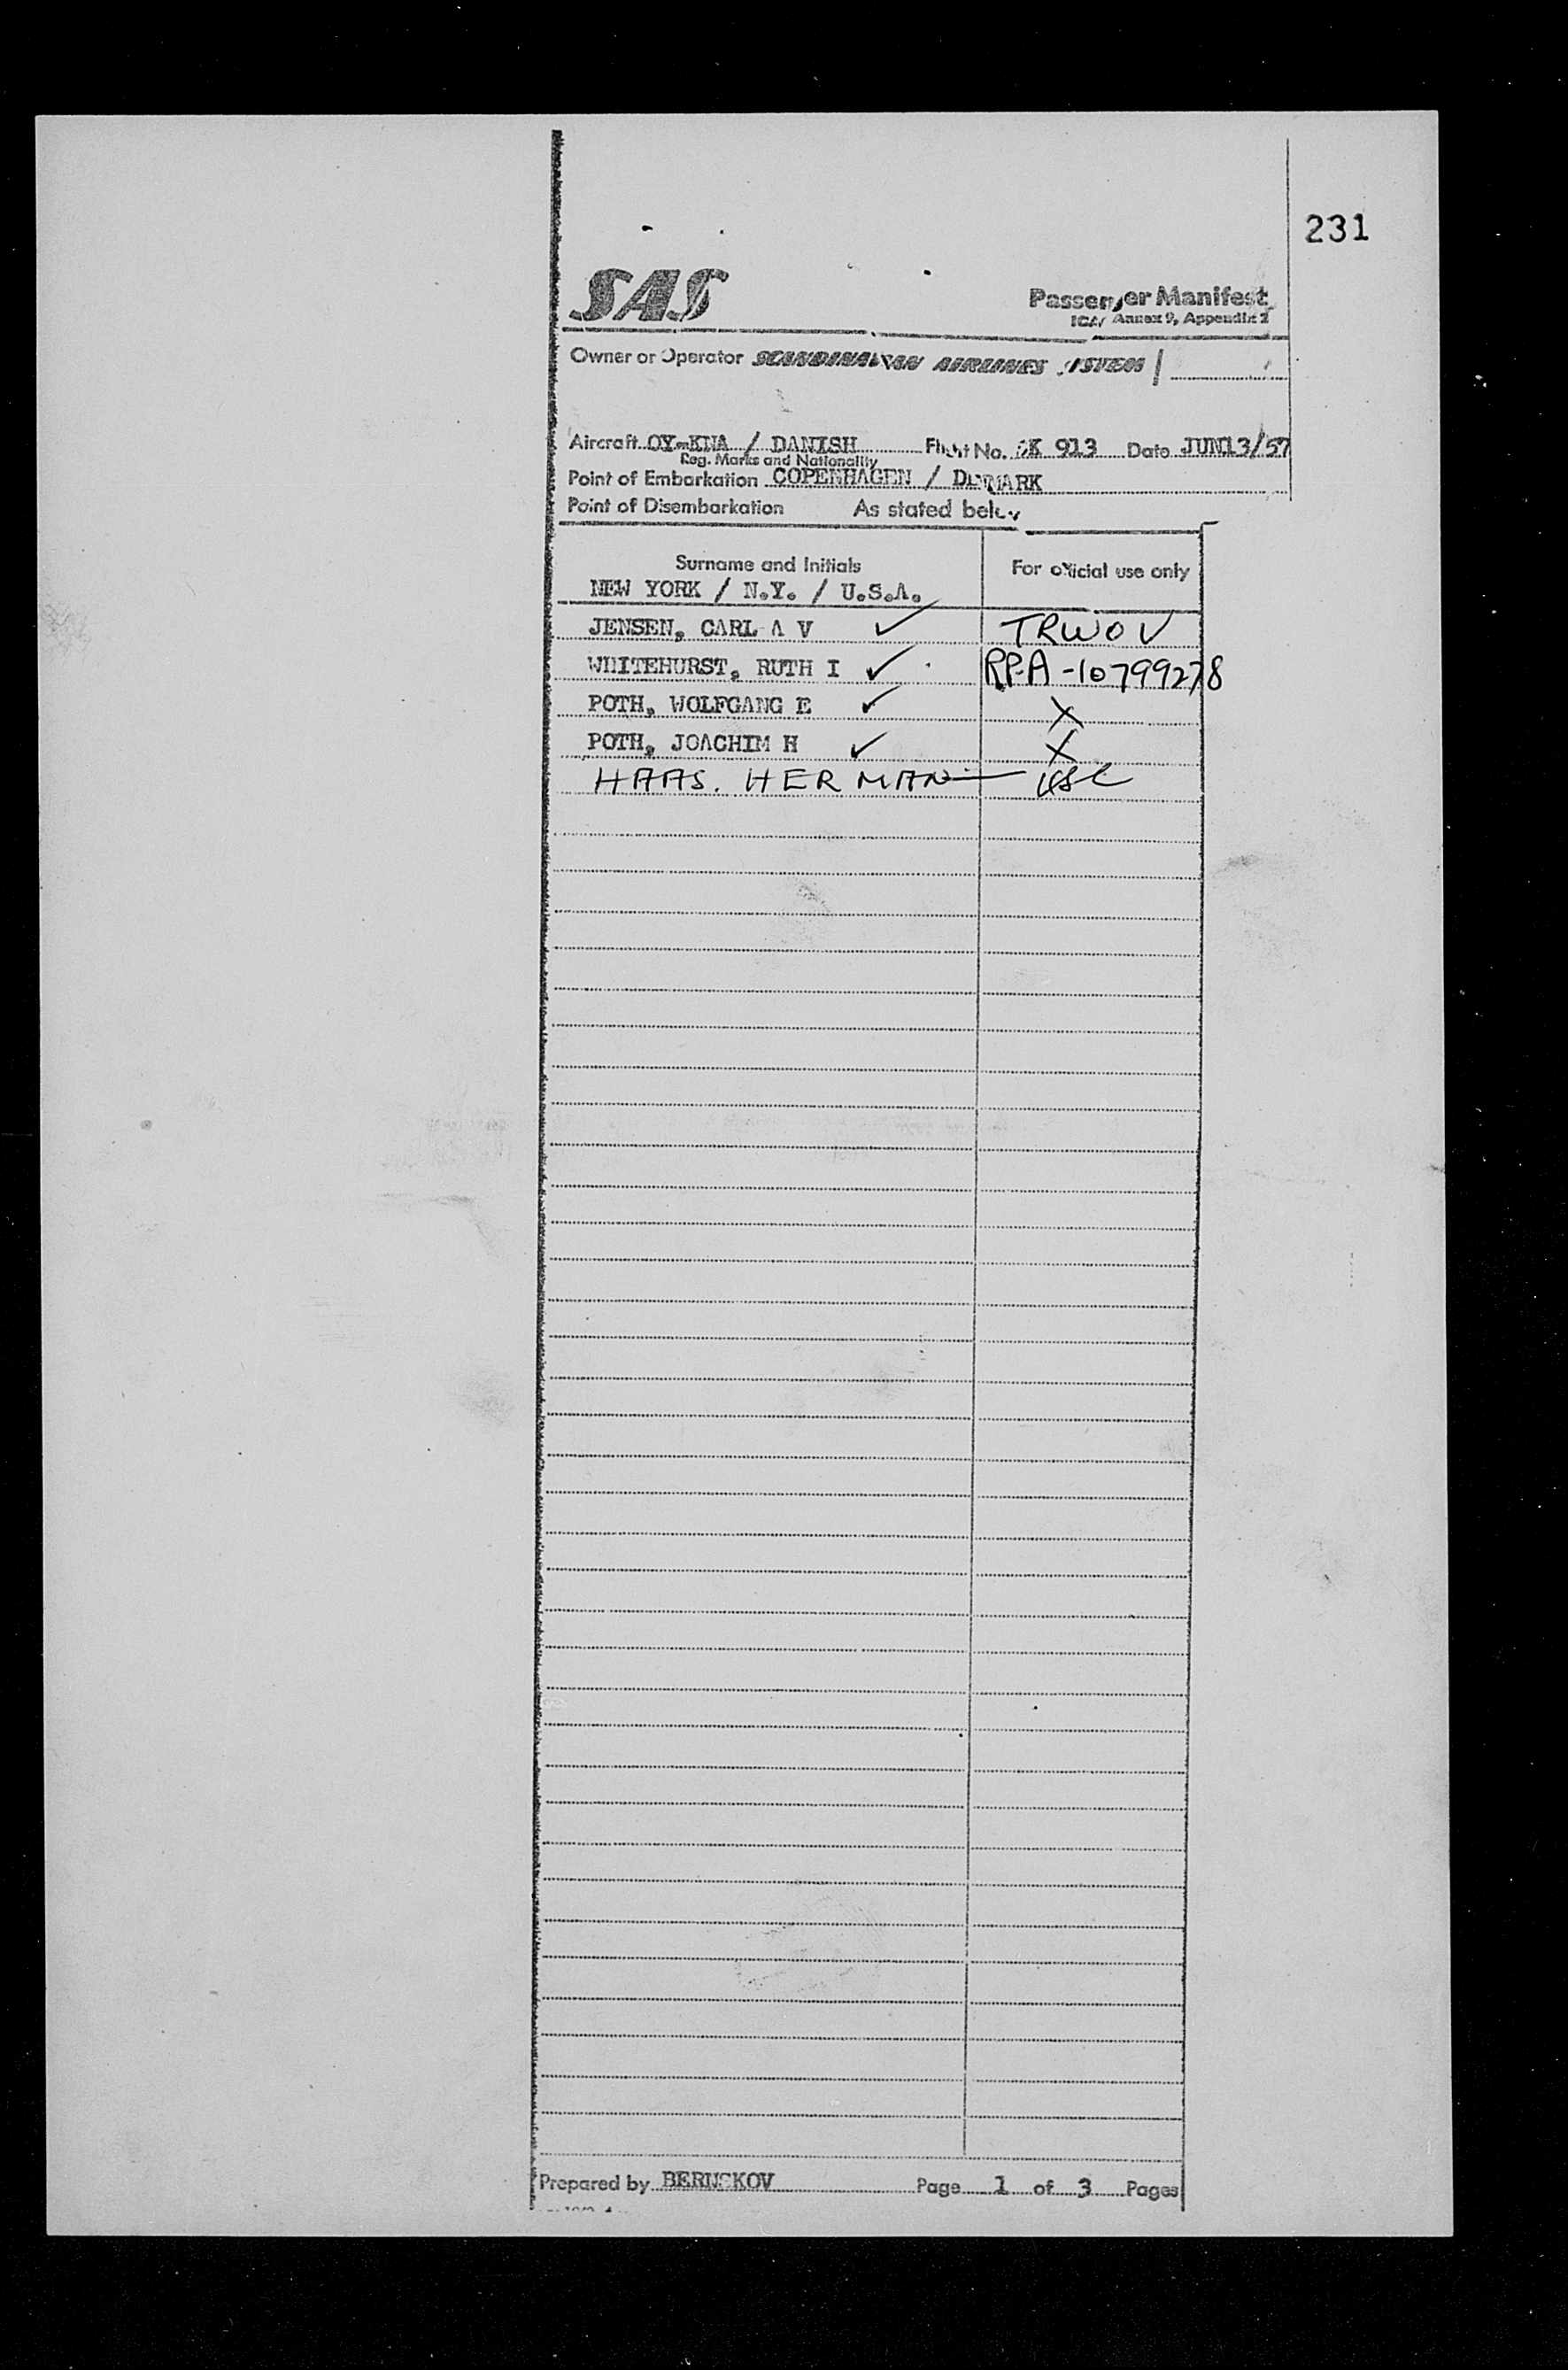 231
SAS
Passenger Manifest
ICAO Annex 9, Appendix 2
Owner or Operator SCANDINAVIAN AIRLINES SYSTEM
Aircraft OY-KNA / DANISH Flight No. SK 913 Date JUN13/57
Reg. Marks and Nationality
Point of Embarkation COPENHAGEN / DENMARK
Point of Disembarkation As stated below
Surname and Initials For official use only
NEW YORK / N.Y. / U.S.A.
JENSEN, CARL A V ✓ TRWOV
WHITEHURST, RUTH I ✓ RPA-10799278
POTH, WOLFGANG E ✓ X
POTH, JOACHIM H ✓ X
HAAS. HERMAN — USC
Prepared by BERNSKOV Page 1 of 3 Pages